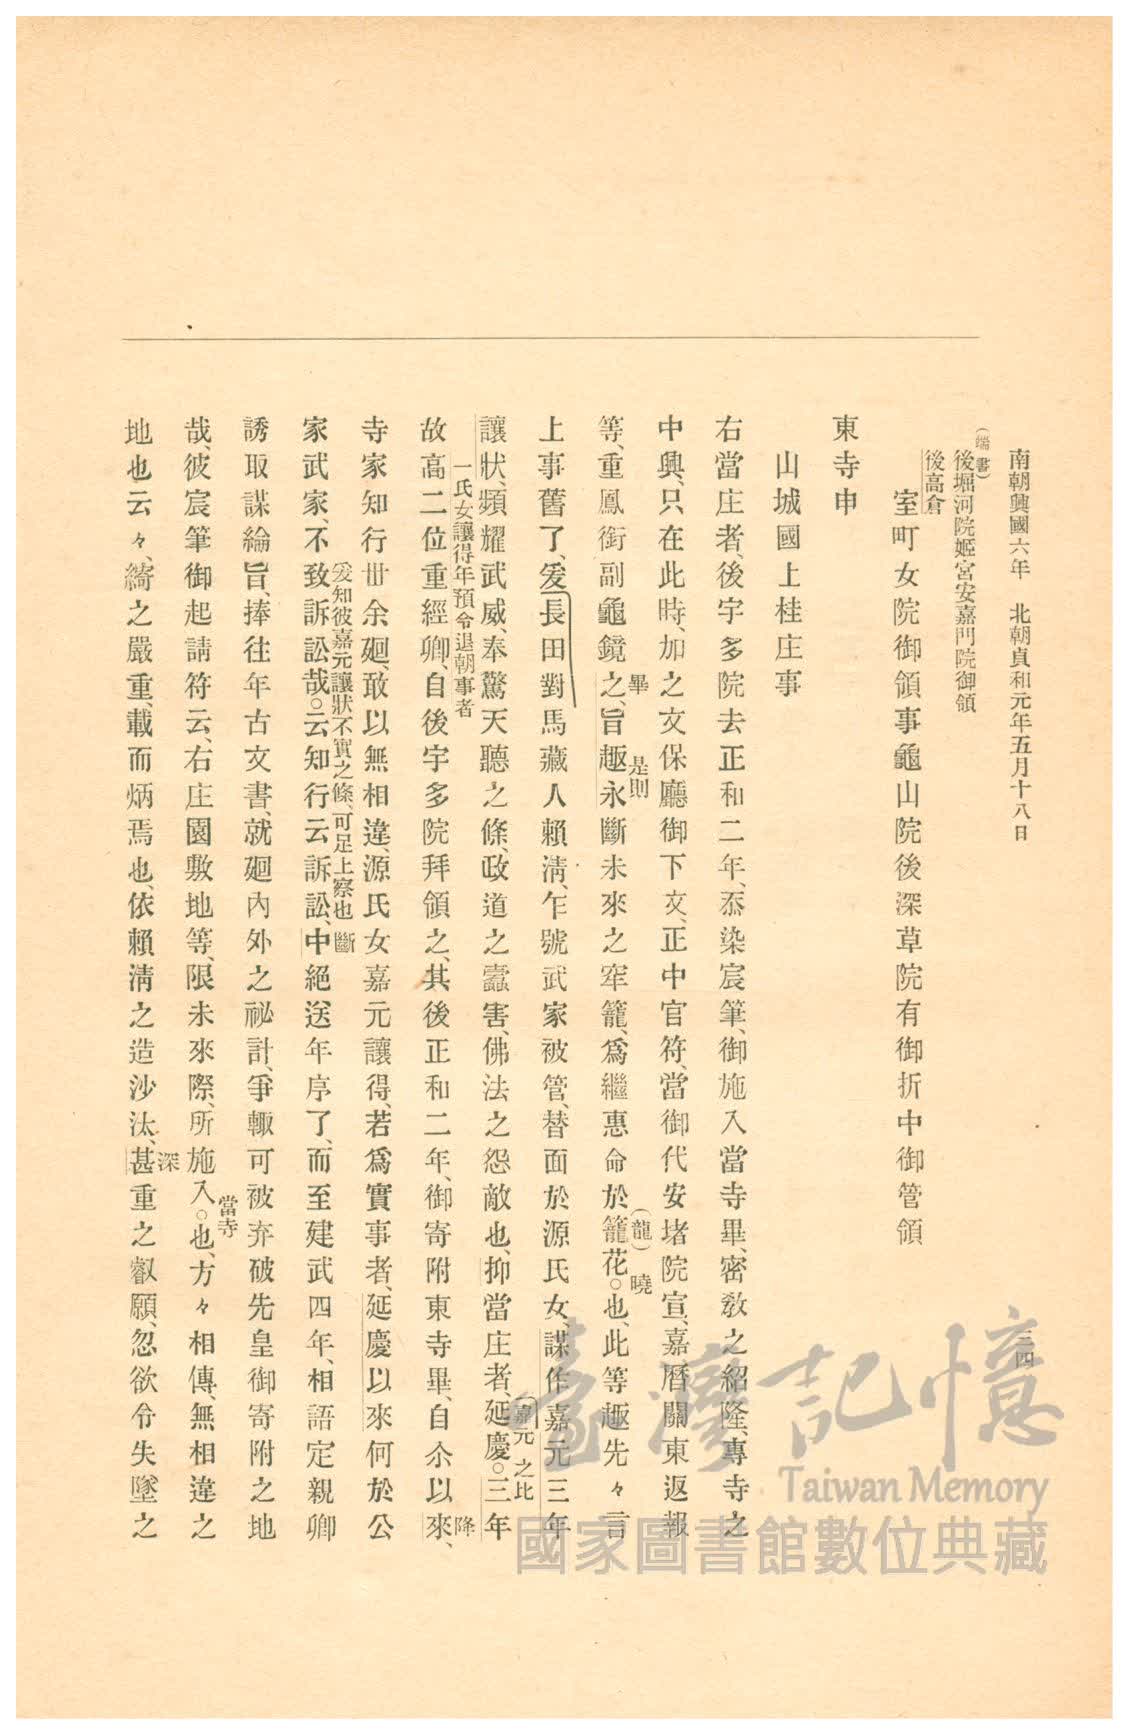 南朝興國六年　北朝貞和元年五月十八日
三四
(端書)
後堀河院姬宮安嘉門院御領
後高倉
室町女院御領事龜山院後深草院有御折中御管領
東寺申
山城國上桂庄事
右當庄者、後宇多院去正和二年、忝染宸筆、御施入當寺畢、密敎之紹隆、專寺之
中興、只在此時、加之文保廳御下文、正中官符、當御代安堵院宣、嘉曆關東返報
畢　是則　(龍)　曉
等、重鳳銜副龜鏡之、旨趣永斷未來之牢籠、爲繼惠命於籠花○也、此等趣先々言
上事舊了、爰長田對馬藏人賴淸、乍號武家被管、替面於源氏女、謀作嘉元三年
(嘉元之比
讓狀、頻耀武威、奉驚天聽之條、政道之蠹害、佛法之怨敵也、抑當庄者、延慶○三年
一氏女讓得年預令退朝事者　降
故高二位重經卿、自後宇多院拜領之、其後正和二年、御寄附東寺畢、自尒以來、
寺家知行丗余廻、敢以無相違、源氏女嘉元讓得、若爲實事者、延慶以來何於公
爰知彼嘉元讓狀不實之條、可足上察也　斷
家武家、不致訴訟哉○云知行云訴訟、中絕送年序了、而至建武四年、相語定親卿
誘取謀綸旨、捧往年古文書、就廻內外之祕計、爭輙可被弃破先皇御寄附之地
當寺
哉、彼宸筆御起請符云、右庄園敷地等、限未來際、所施入○也、方々相傳、無相違之
深
地也云々、綺之嚴重、載而炳焉也、依賴淸之造沙汰、甚重之叡願、忽欲令失墜之
臺灣記憶
Taiwan Memory
國家圖書館數位典藏